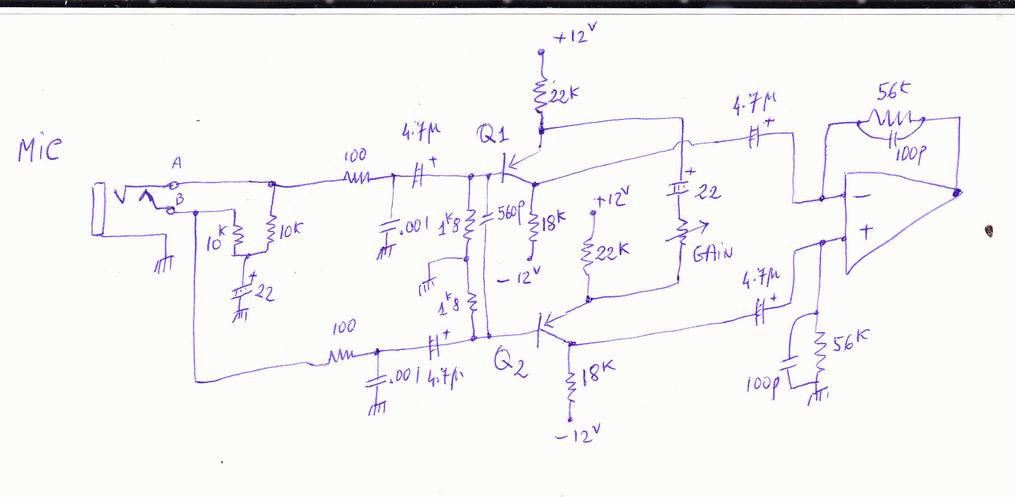 MIC
A
B
10K
10K
+
22
100
4.7µ
+
.001
1K8
560p
1K8
100
.001
4.7µ
+
Q1
+12V
22K
18K
-12V
+12V
22K
+
22
GAIN
Q2
18K
-12V
4.7µ
+
4.7µ
+
56K
100p
-
+
100p
56K